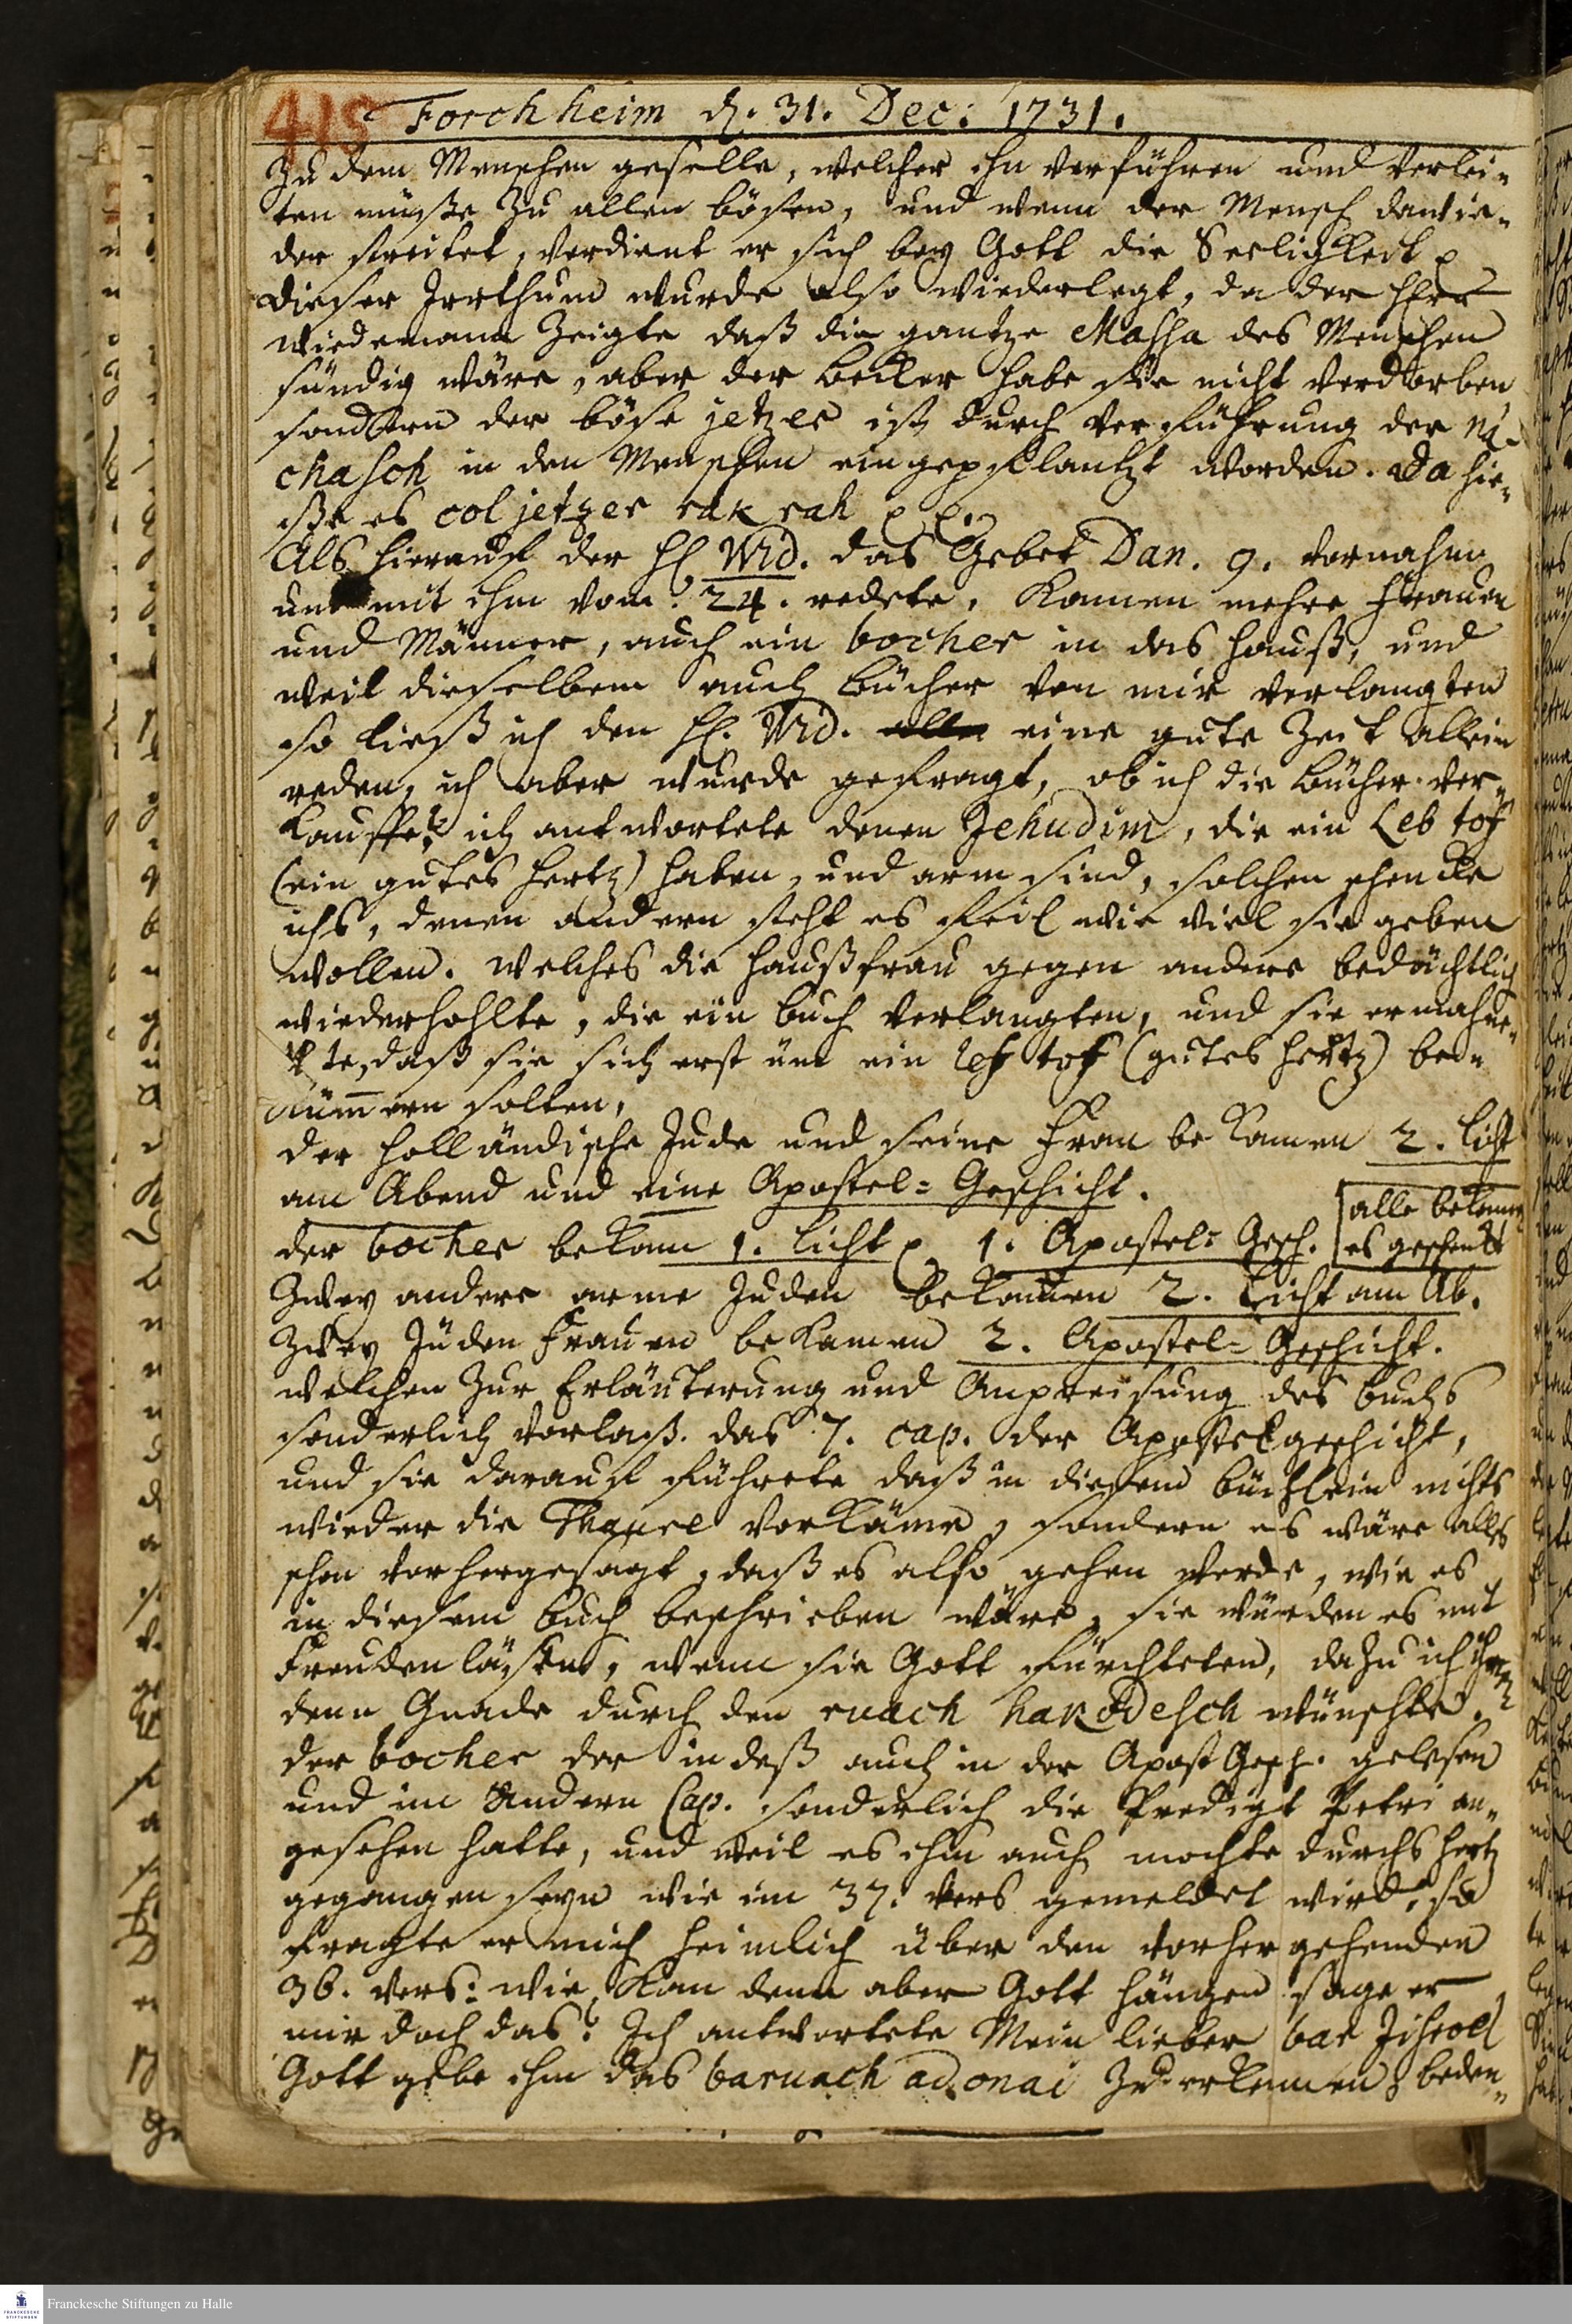 418
Forchheim d. 31. Dec: 1731.
Zu dem Menschen geselle, welcher ihn verführen und verlei-
ten müste zu allen bösen, und wenn der Mensch darwie-
der streitet, verdient er sich bey Gott die Seeligkeit
dieser Irrthum wurde also wiederlegt, da der Herr
Wiedemann zeigte daß die gantze Massa des Menschen
sündig wäre, aber der habe sie nicht verdorben
sondern der böse jetzer ist durch Verführung der na-
chasch in den Menschen eingepflantzt worden. Da hie-
ße es col jetzer rak rah
Als hierauf der H. Wid. das Gebet Dan. 9. vornahm
und mit ihm vom 24. redete, kamen mehre Frauen
und Männer, auch ein bocher in das Hauß, und
weil dieselben auch Bücher von mir verlangten
so ließ ich den H. Wid. eine gute Zeit allein
reden, ich aber wurde gefragt, ob ich die Bücher ver-
kauffe? ich antwortete denen Jehudim, die ein Leb tof
(ein gutes Hertz) haben, und arm sind, solchen schencke
ichs, denen andern steht es feil wie viel sie geben
wollen. Welches die Haußfrau gegen andere bedächtlich
wiederhohlte, die ein Buch verlangten, und sie ermahne-
te, daß sie sich erst üm ein lef tof (gutes Hertz) be-
kümmern solten,
der holländische Jude und seine Frau bekamen 2. Licht
am Abend und eine Apostel-Geschicht.
der bocher bekam 1. Licht 1. Apostel-Gesch.
[alle bekamen
es geschenckt
Zwey andere arme Juden bekamen 2. Licht am Ab.
Zwey Jüden Frauen bekamen 2. Apostel-Geschicht.
welchen zur Erläuterung und Anpreisung des Buchs
sonderlich vorlaß das 7. cap. der Apostelgeschicht,
und sie darauf führete daß in diesem Büchlein nichts
wieder die Thaure vorkäme, sondern es wäre alles
schon vorhergesagt, daß es also gehen werde, wie es
in diesem Buch beschrieben wäre, sie würden es mit
Freuden läsen, wenn sie Gott fürchteten, dazu ich ihnen
denn Gnade durch den ruach hakodesch wünschte.
der bocher der indeß auch in der Apost Gesch. gelesen
und im Andern Cap. sonderlich die Predigt Petri an-
gesehen hatte, und weil es ihm auch mochte durchs Hertz
gegangen seyn wie im 37. vers gemeldet wird, so
fragte er mich heimlich über den vorhergehenden
36. vers: wie kan denn aber Gott hängen sage er
mir doch das? Ich antwortete Mein lieber bar Jisroel
Gott gebe ihm das baruach adonai zu erkennen, beden-